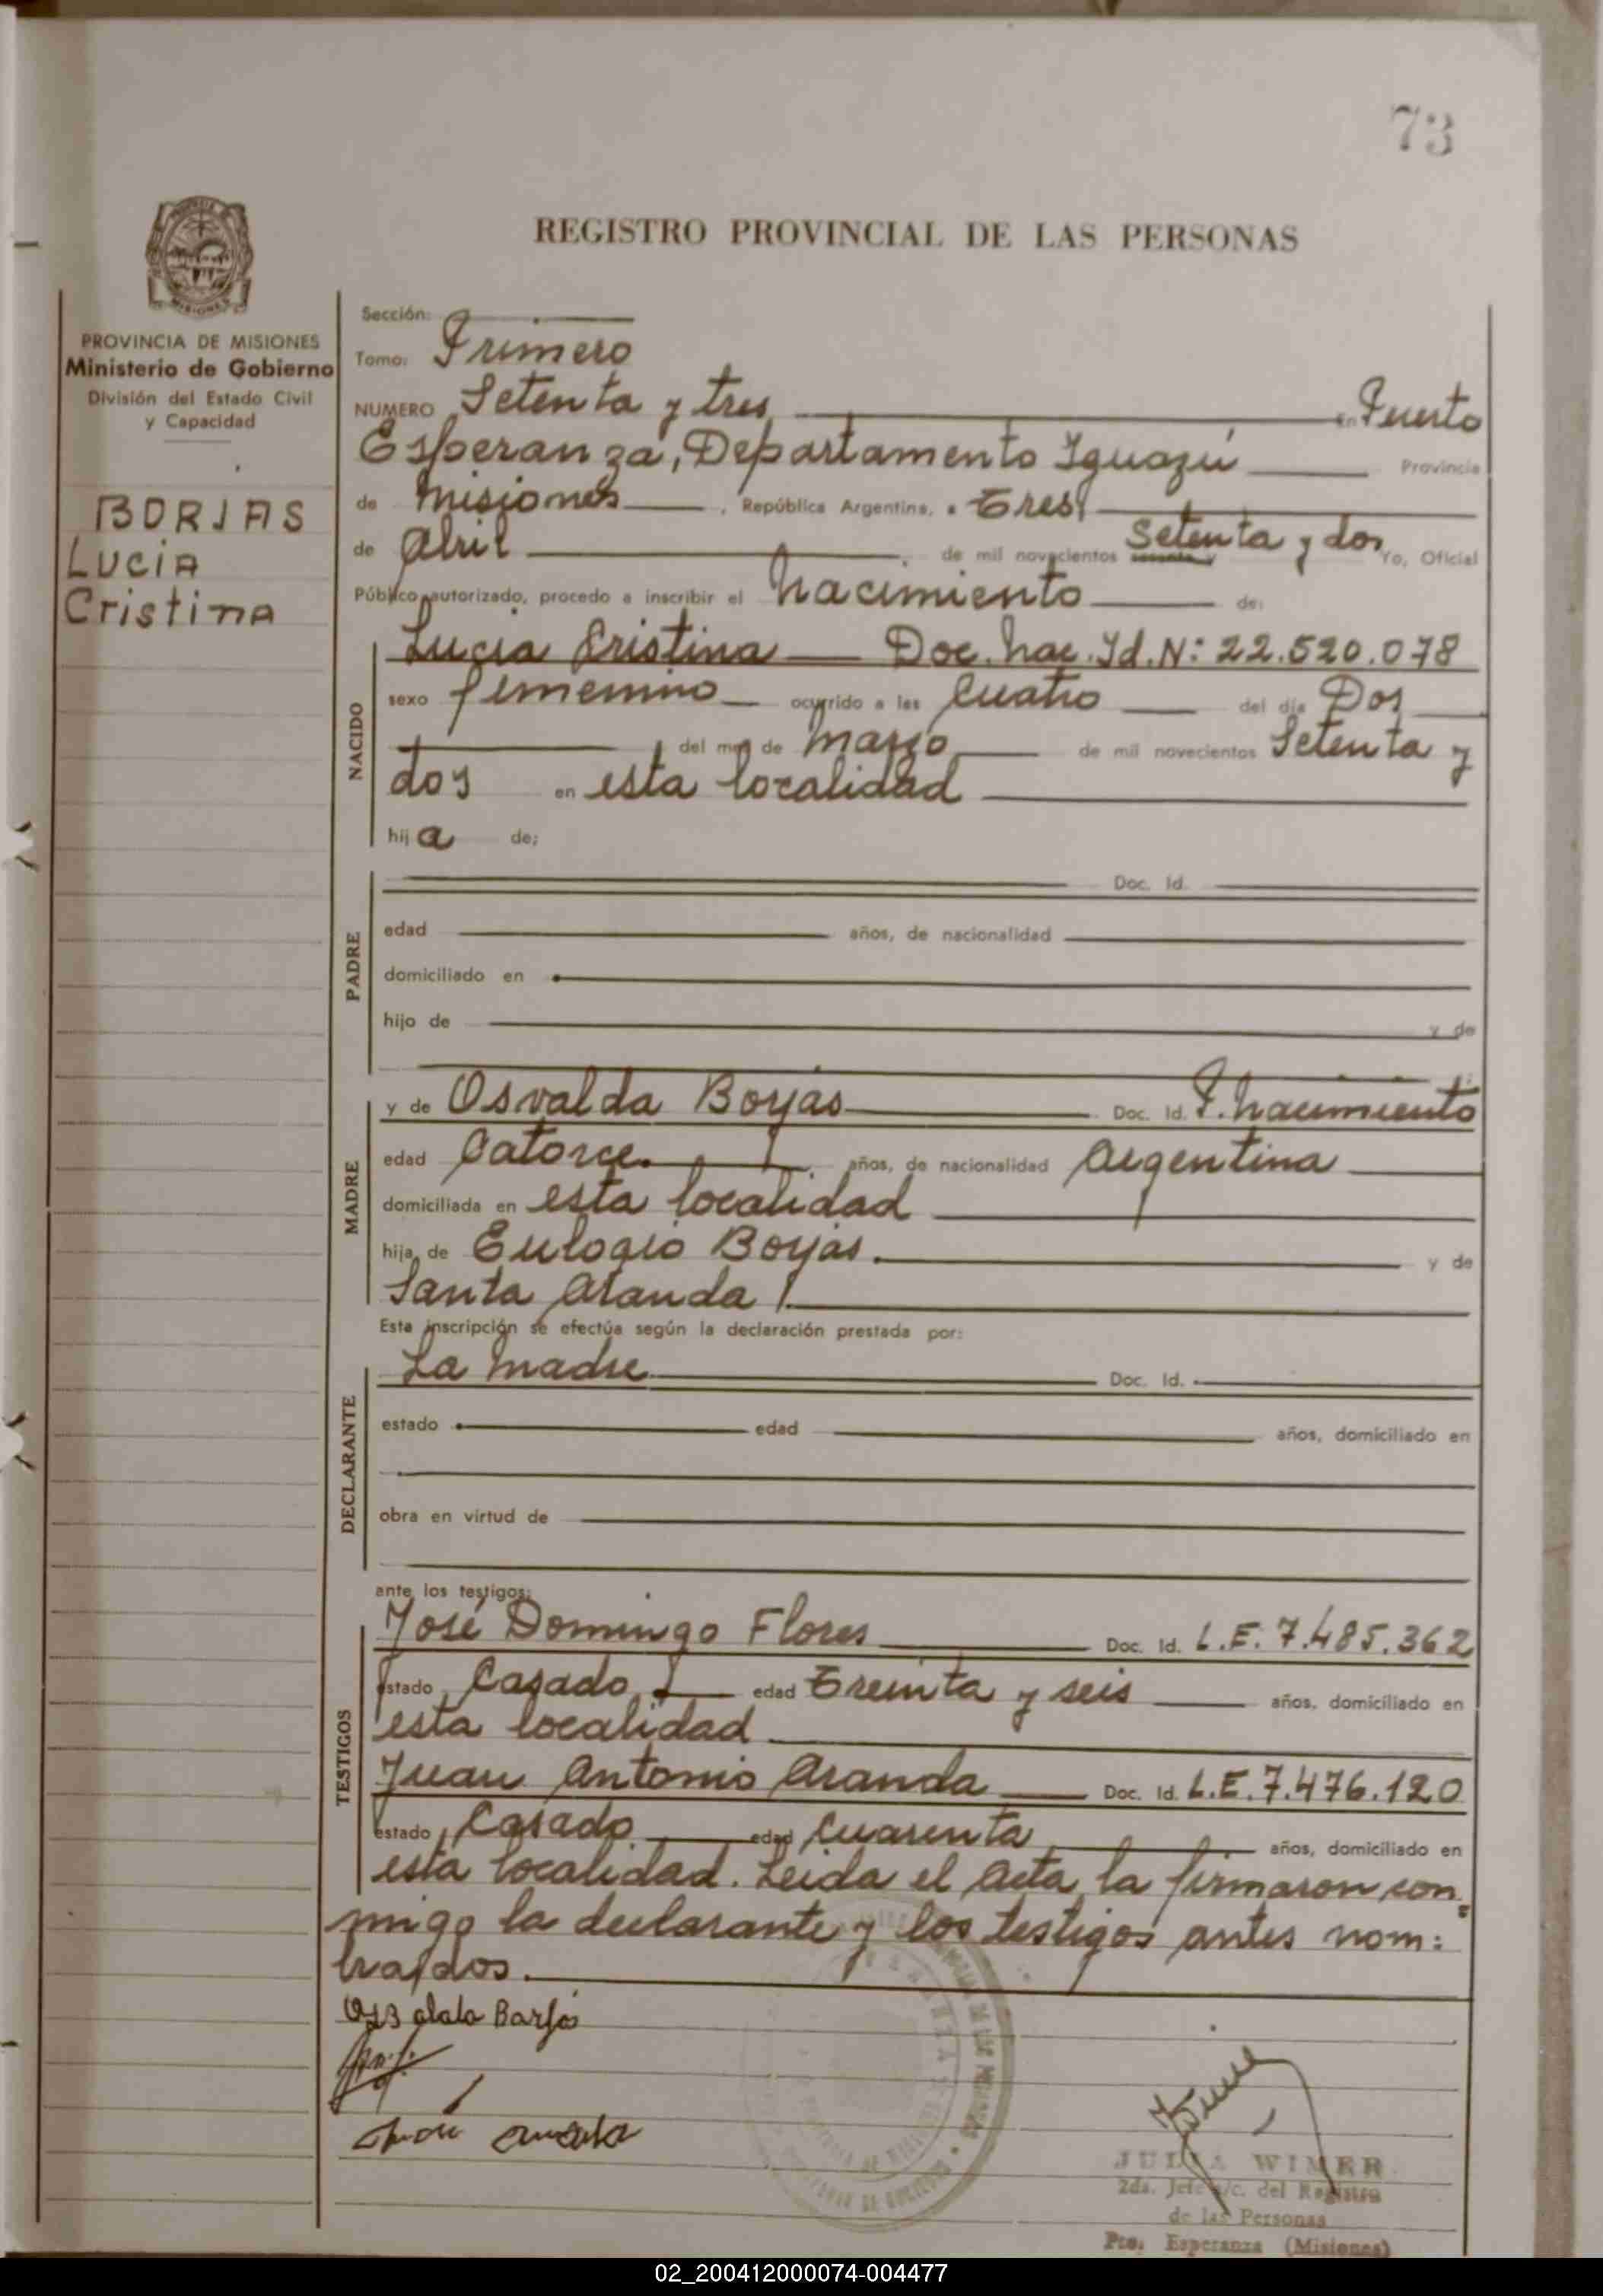 73
REGISTRO PROVINCIAL DE LAS PERSONAS
PROVINCIA DE MISIONES
Ministerio de Gobierno
División del Estado Civil
y Capacidad
BORJAS
LUCIA
Cristina
Sección:
Tomo: Primero
NUMERO Setenta y tres en Puerto
Esperanza, Departamento Iguazú Provincia
de Misiones, República Argentina, a Tres
de Abril de mil novecientos sesenta y Setenta y dos Yo, Oficial
Público autorizado, procedo a inscribir el nacimiento de:
NACIDO
Lucia Cristina Doc. nac. Id. N: 22.520.078
sexo femenino ocurrido a las Cuatro del día Dos
del mes de Marzo de mil novecientos Setenta y
dos en esta localidad
hija de;
PADRE
Doc. Id.
edad años, de nacionalidad
domiciliado en
hijo de y de
MADRE
y de Osvalda Borjas Doc. Id. P. nacimiento
edad Catorce años, de nacionalidad Argentina
domiciliada en esta localidad
hija de Eulogio Borjas y de
Santa Aranda
Esta inscripción se efectúa según la declaración prestada por:
DECLARANTE
La madre Doc. Id.
estado edad años, domiciliado en
obra en virtud de
ante los testigos:
TESTIGOS
José Domingo Flores Doc. Id. L.E. 7.485.362
estado Casado edad Treinta y seis años, domiciliado en
esta localidad
Juan Antonio Aranda Doc. Id. L.E. 7.476.120
estado Casado edad Cuarenta años, domiciliado en
esta localidad. Leida el acta, la firmaron con
migo la declarante y los testigos antes nom:
brados.
JULIA WIMER
2da. Jefe a/c. del Registro
de las Personas
Pto. Esperanza (Misiones)
02_200412000074-004477